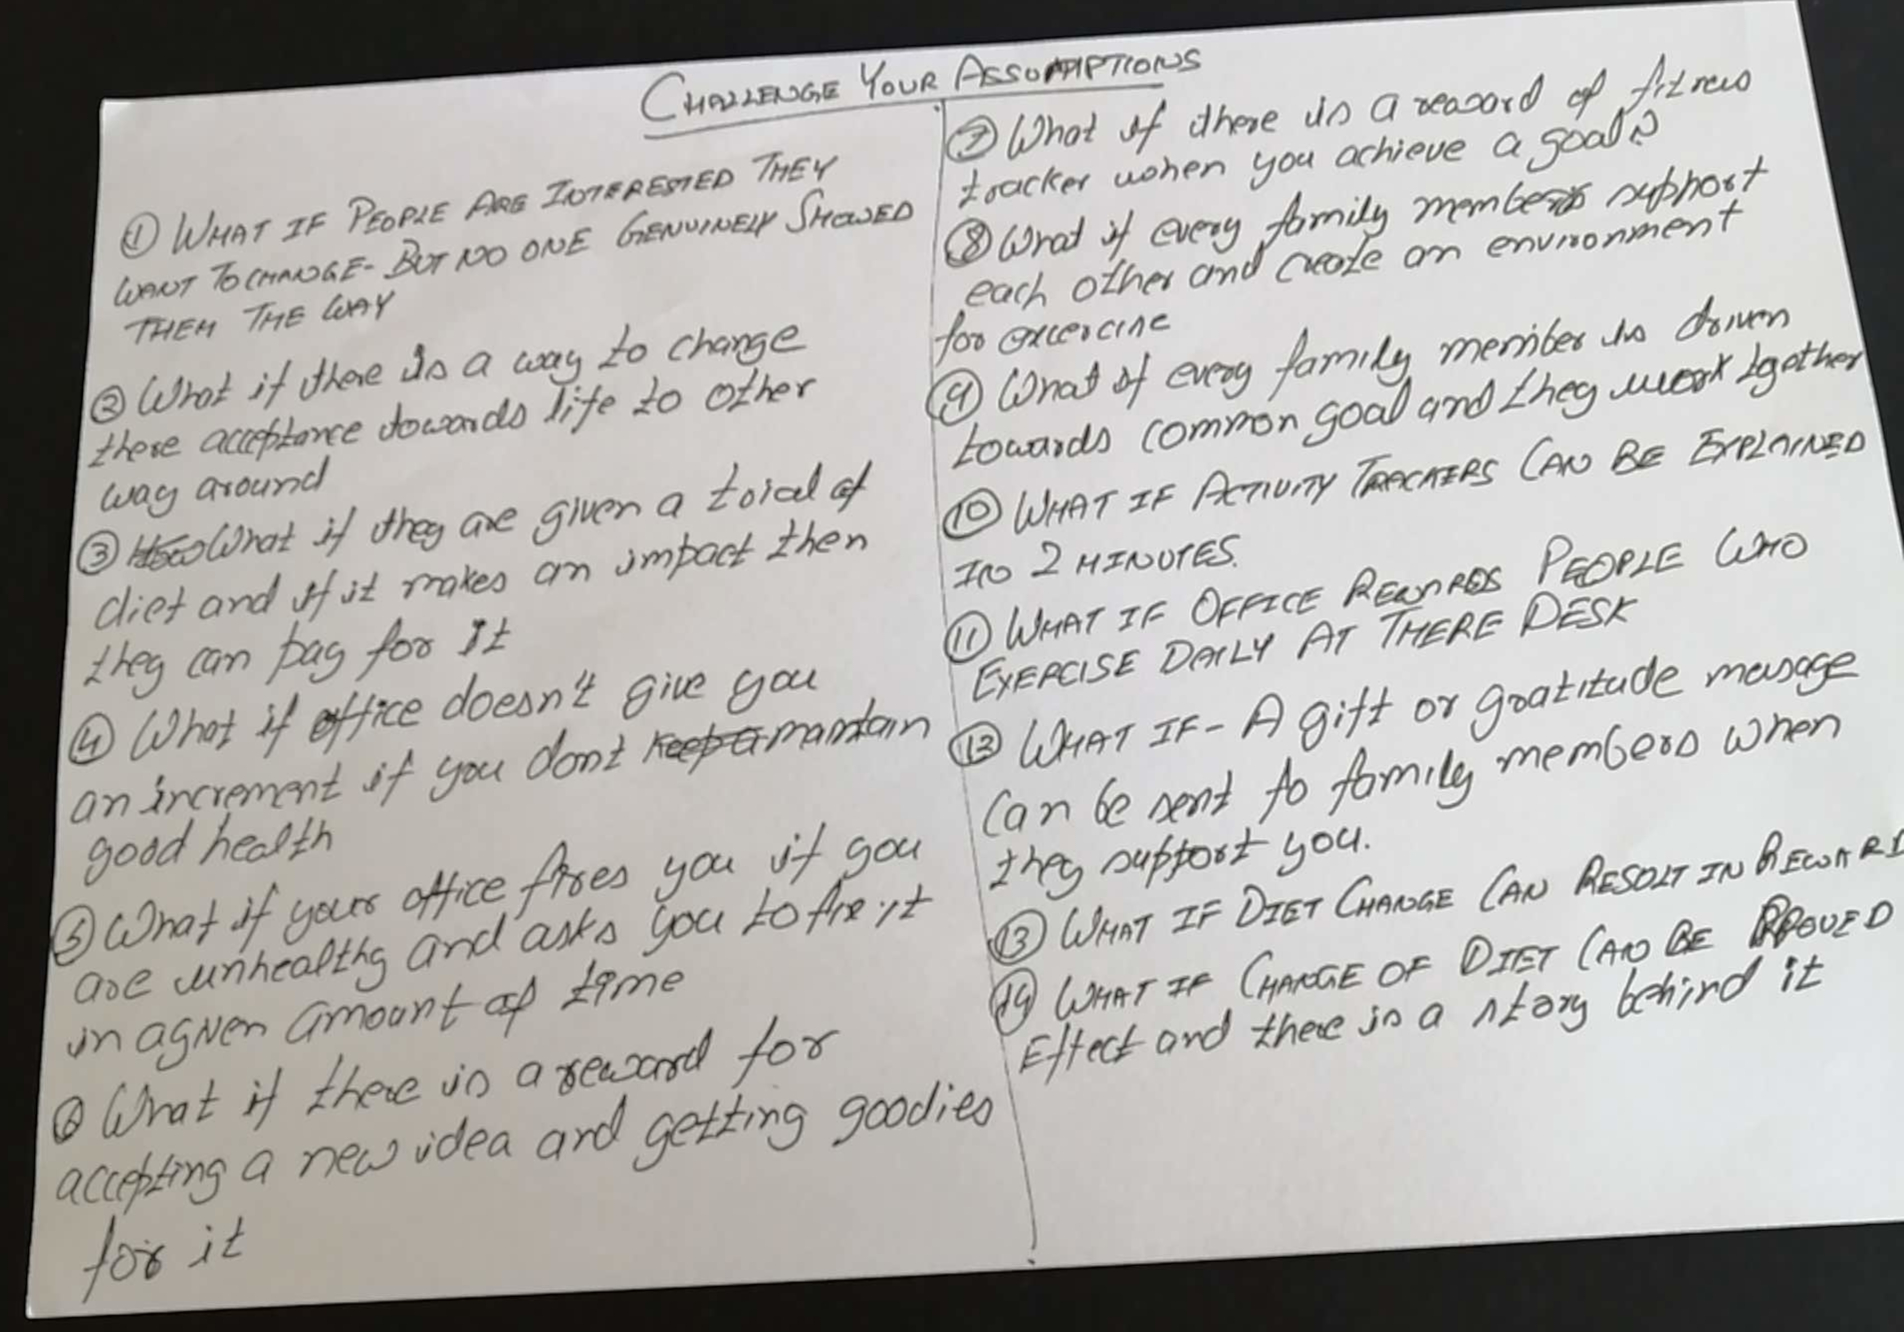 CHALLENGE YOUR ASSUMPTIONS
① WHAT IF PEOPLE ARE INTERESTED THEY
WANT TO CHANGE - BUT NO ONE GENUINELY SHOWED
THEM THE WAY
② What if there is a way to change
there acceptance towards life to other
way around
③ How What if they are given a trial of
diet and if it makes an impact then
they can pay for it
④ What if office doesn't give you
an increment if you dont keep a maintain
good health
⑤ What if your office fires you if you
are unhealthy and asks you to fix it
in a given amount of time
⑥ What if there is a reward for
accepting a new idea and getting goodies
for it
⑦ What if there is a reward of fitness
tracker when you achieve a goal?
⑧ What if every family members support
each other and create an environment
for excercise
⑨ What if every family member is driven
towards common goal and they work tgother
⑩ WHAT IF ACTIVITY TRACKERS CAN BE EXPLAINED
IN 2 MINUTES.
⑪ WHAT IF OFFICE REWARDS PEOPLE WHO
EXERCISE DAILY AT THERE DESK
⑫ WHAT IF - A gift or gratitude message
can be sent to family members when
they support you.
⑬ WHAT IF DIET CHANGE CAN RESULT IN REWARD
⑭ WHAT IF CHANGE OF DIET CAN BE PROVED
Effect and there is a story behind it